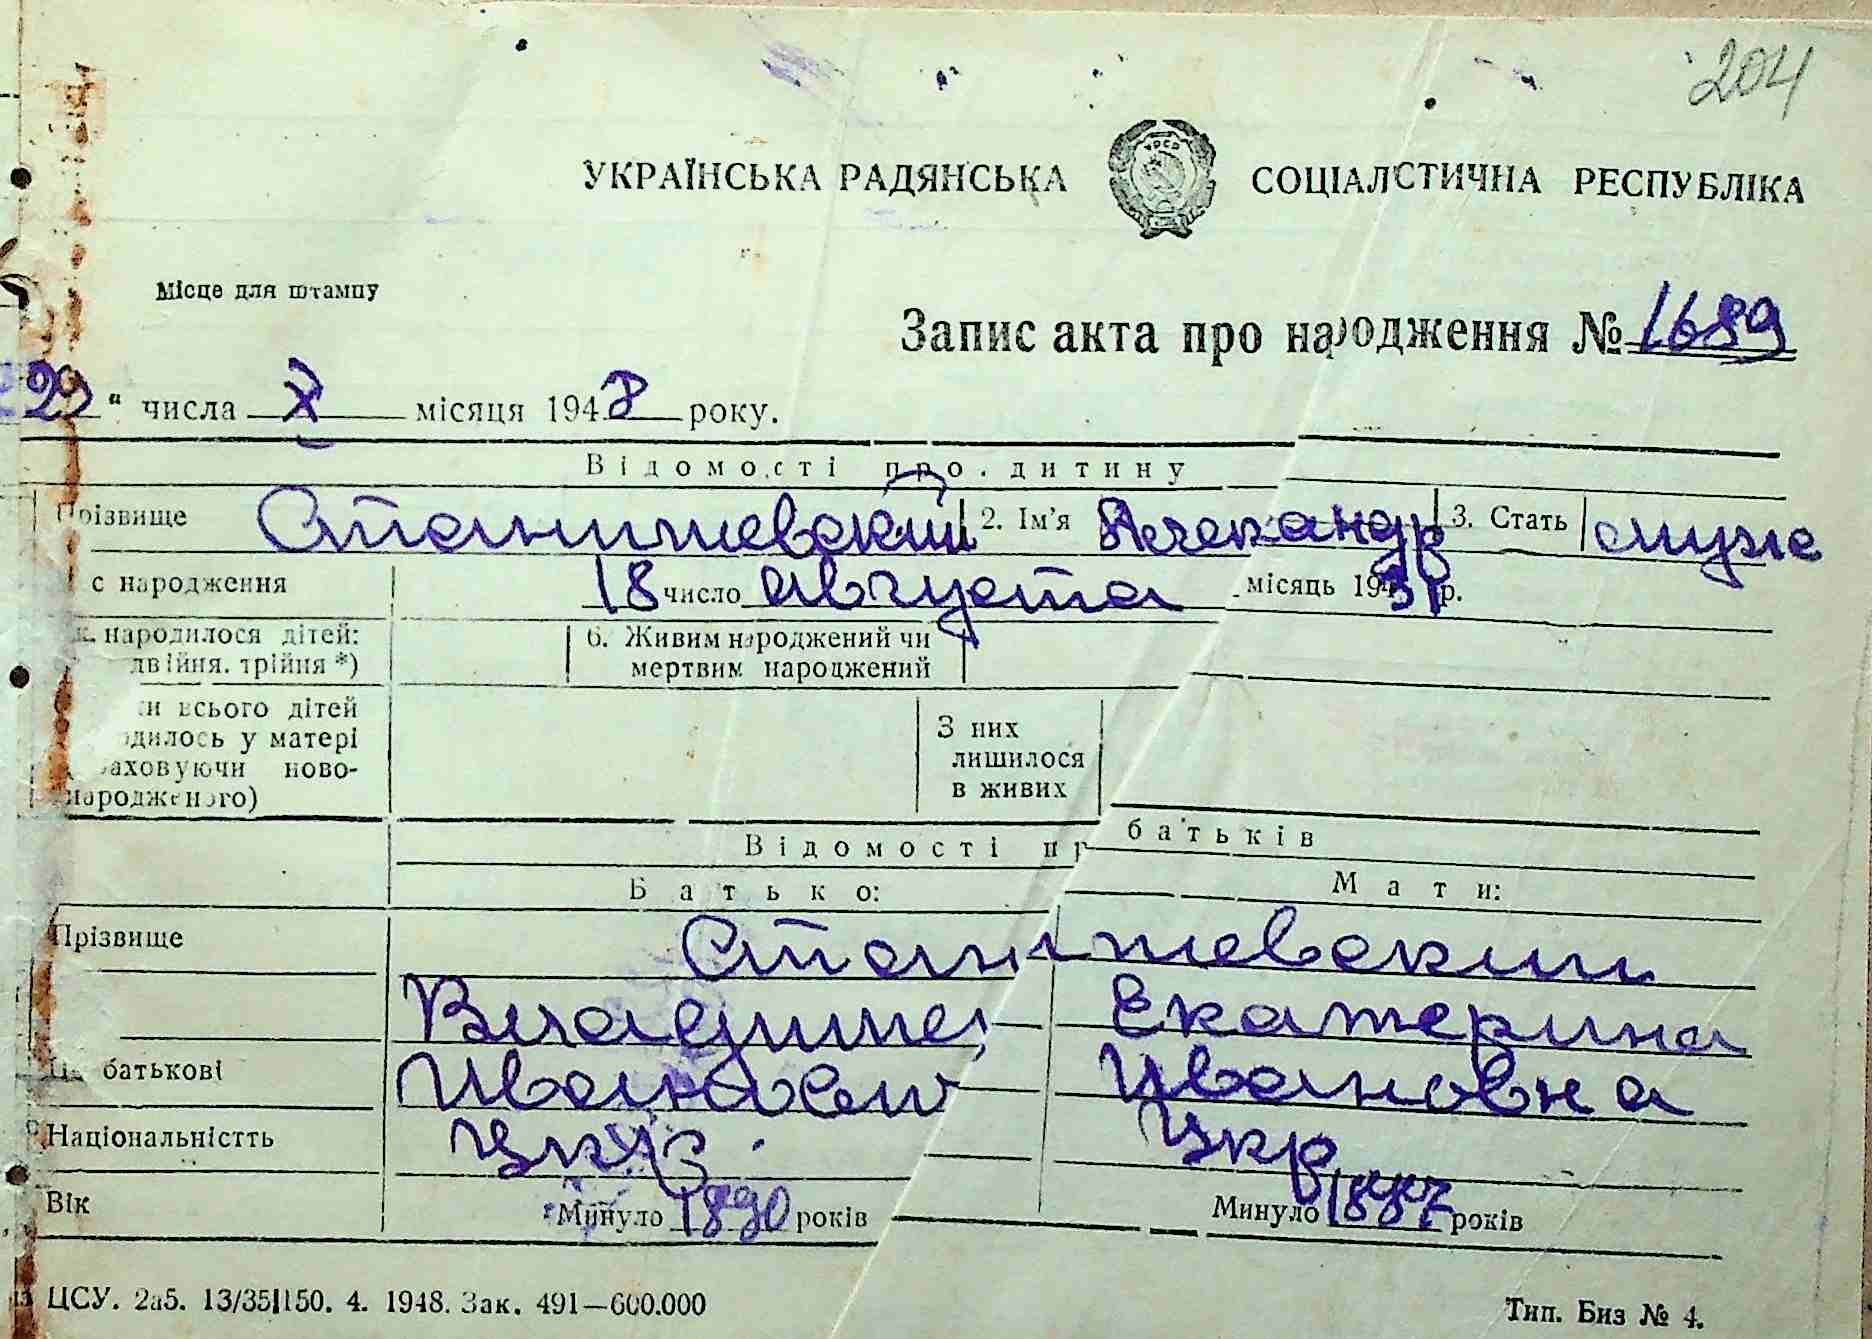 204
УКРАЇНСЬКА РАДЯНСЬКА СОЦІАЛСТИЧНА РЕСПУБЛІКА
Місце для штампу
Запис акта про народження № 1689
29 " числа X місяця 1948 року.
Відомості про дитину
Прізвище Станишевский 2. Ім'я Александр 3. Стать муж
с народження 18 число августа місяць 1931 р.
к. народилося дітей: 6. Живим народжений чи
двійня. трійня *) мертвим народжений
и всього дітей З них
одилось у матері лишилося
аховуючи ново- в живих
народженого)
Відомості пр батьків
Батько: Мати:
Прізвище Станишевский
Владимир Екатерина
По батькові Иванович Ивановна
Національністть Укр Укр
Вік Минуло 1890 років Минуло 1887 років
ЦСУ. 2а5. 13/35|150. 4. 1948. Зак. 491—600.000 Тип. Биз № 4.